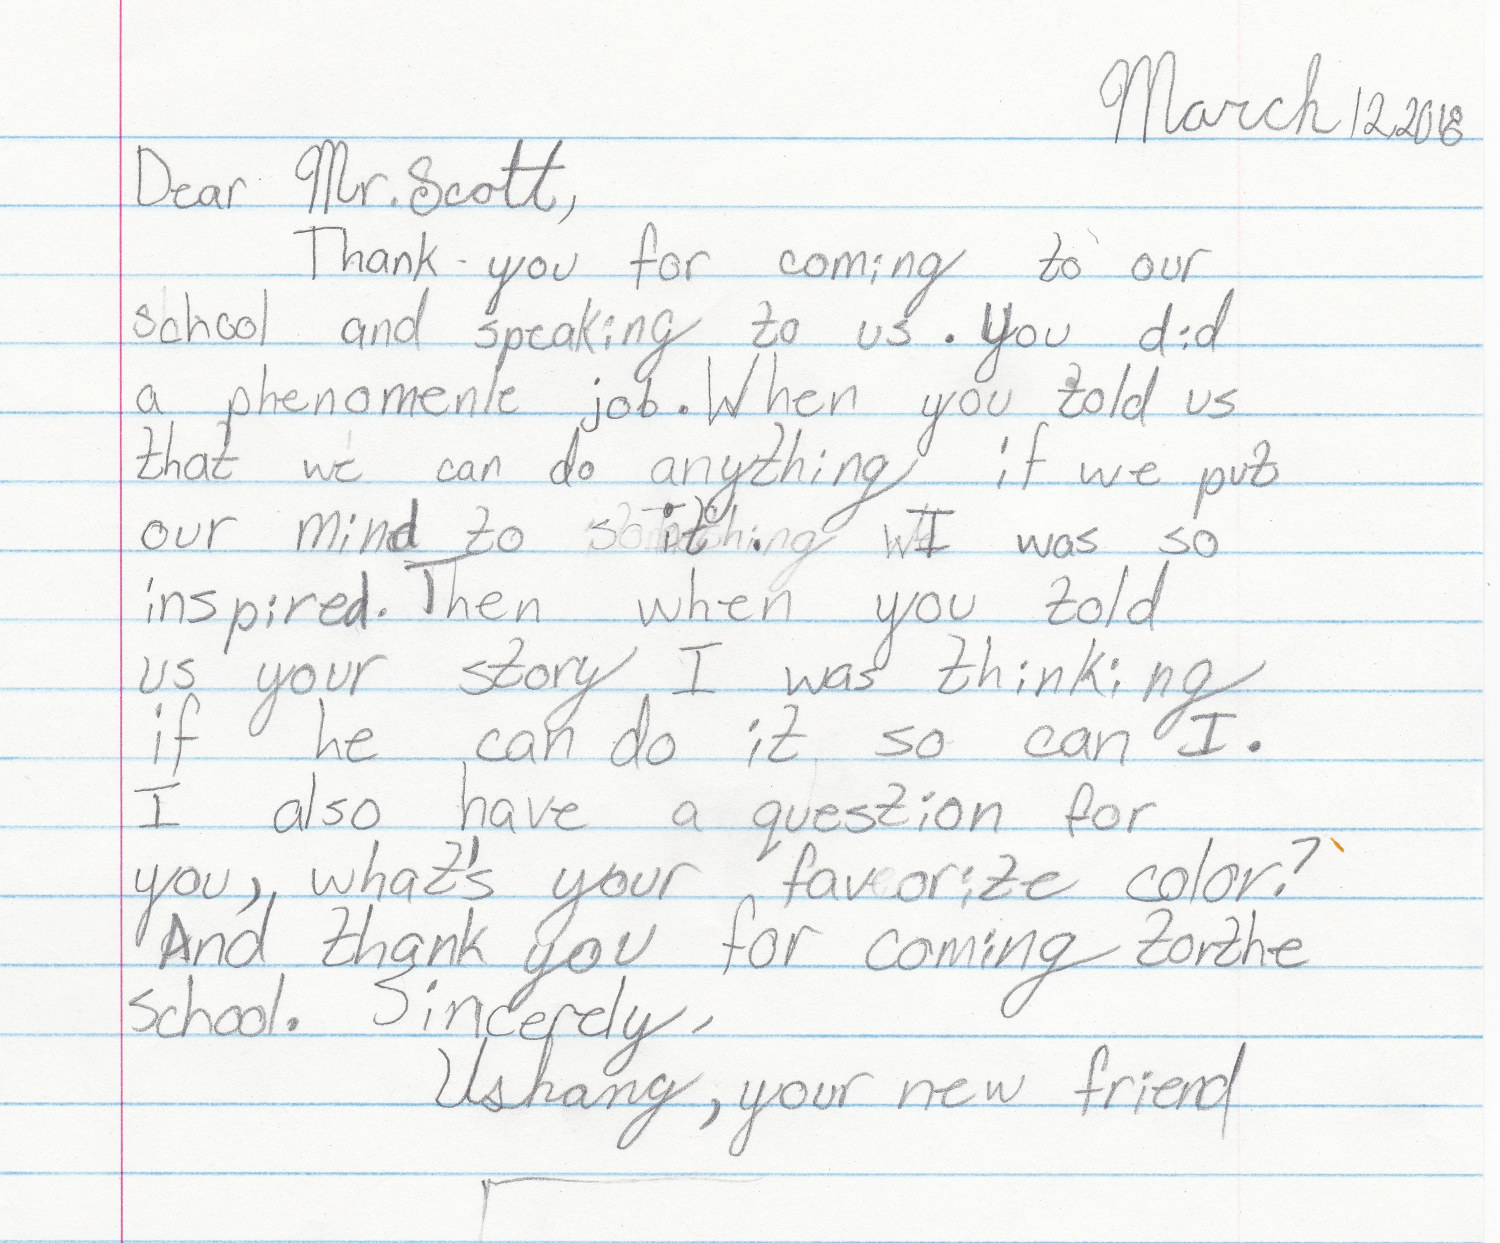 March 12, 2018
Dear Mr. Scott,
Thank-you for coming to our
school and speaking to us. You did
a phenomenle job. When you told us
that we can do anything if we put
our mind to it. I was so
inspired. Then when you told
us your story I was thinking
if he can do it so can I.
I also have a question for
you, what's your favorite color?
And thank you for coming to the
school. Sincerely,
Ushang, your new friend